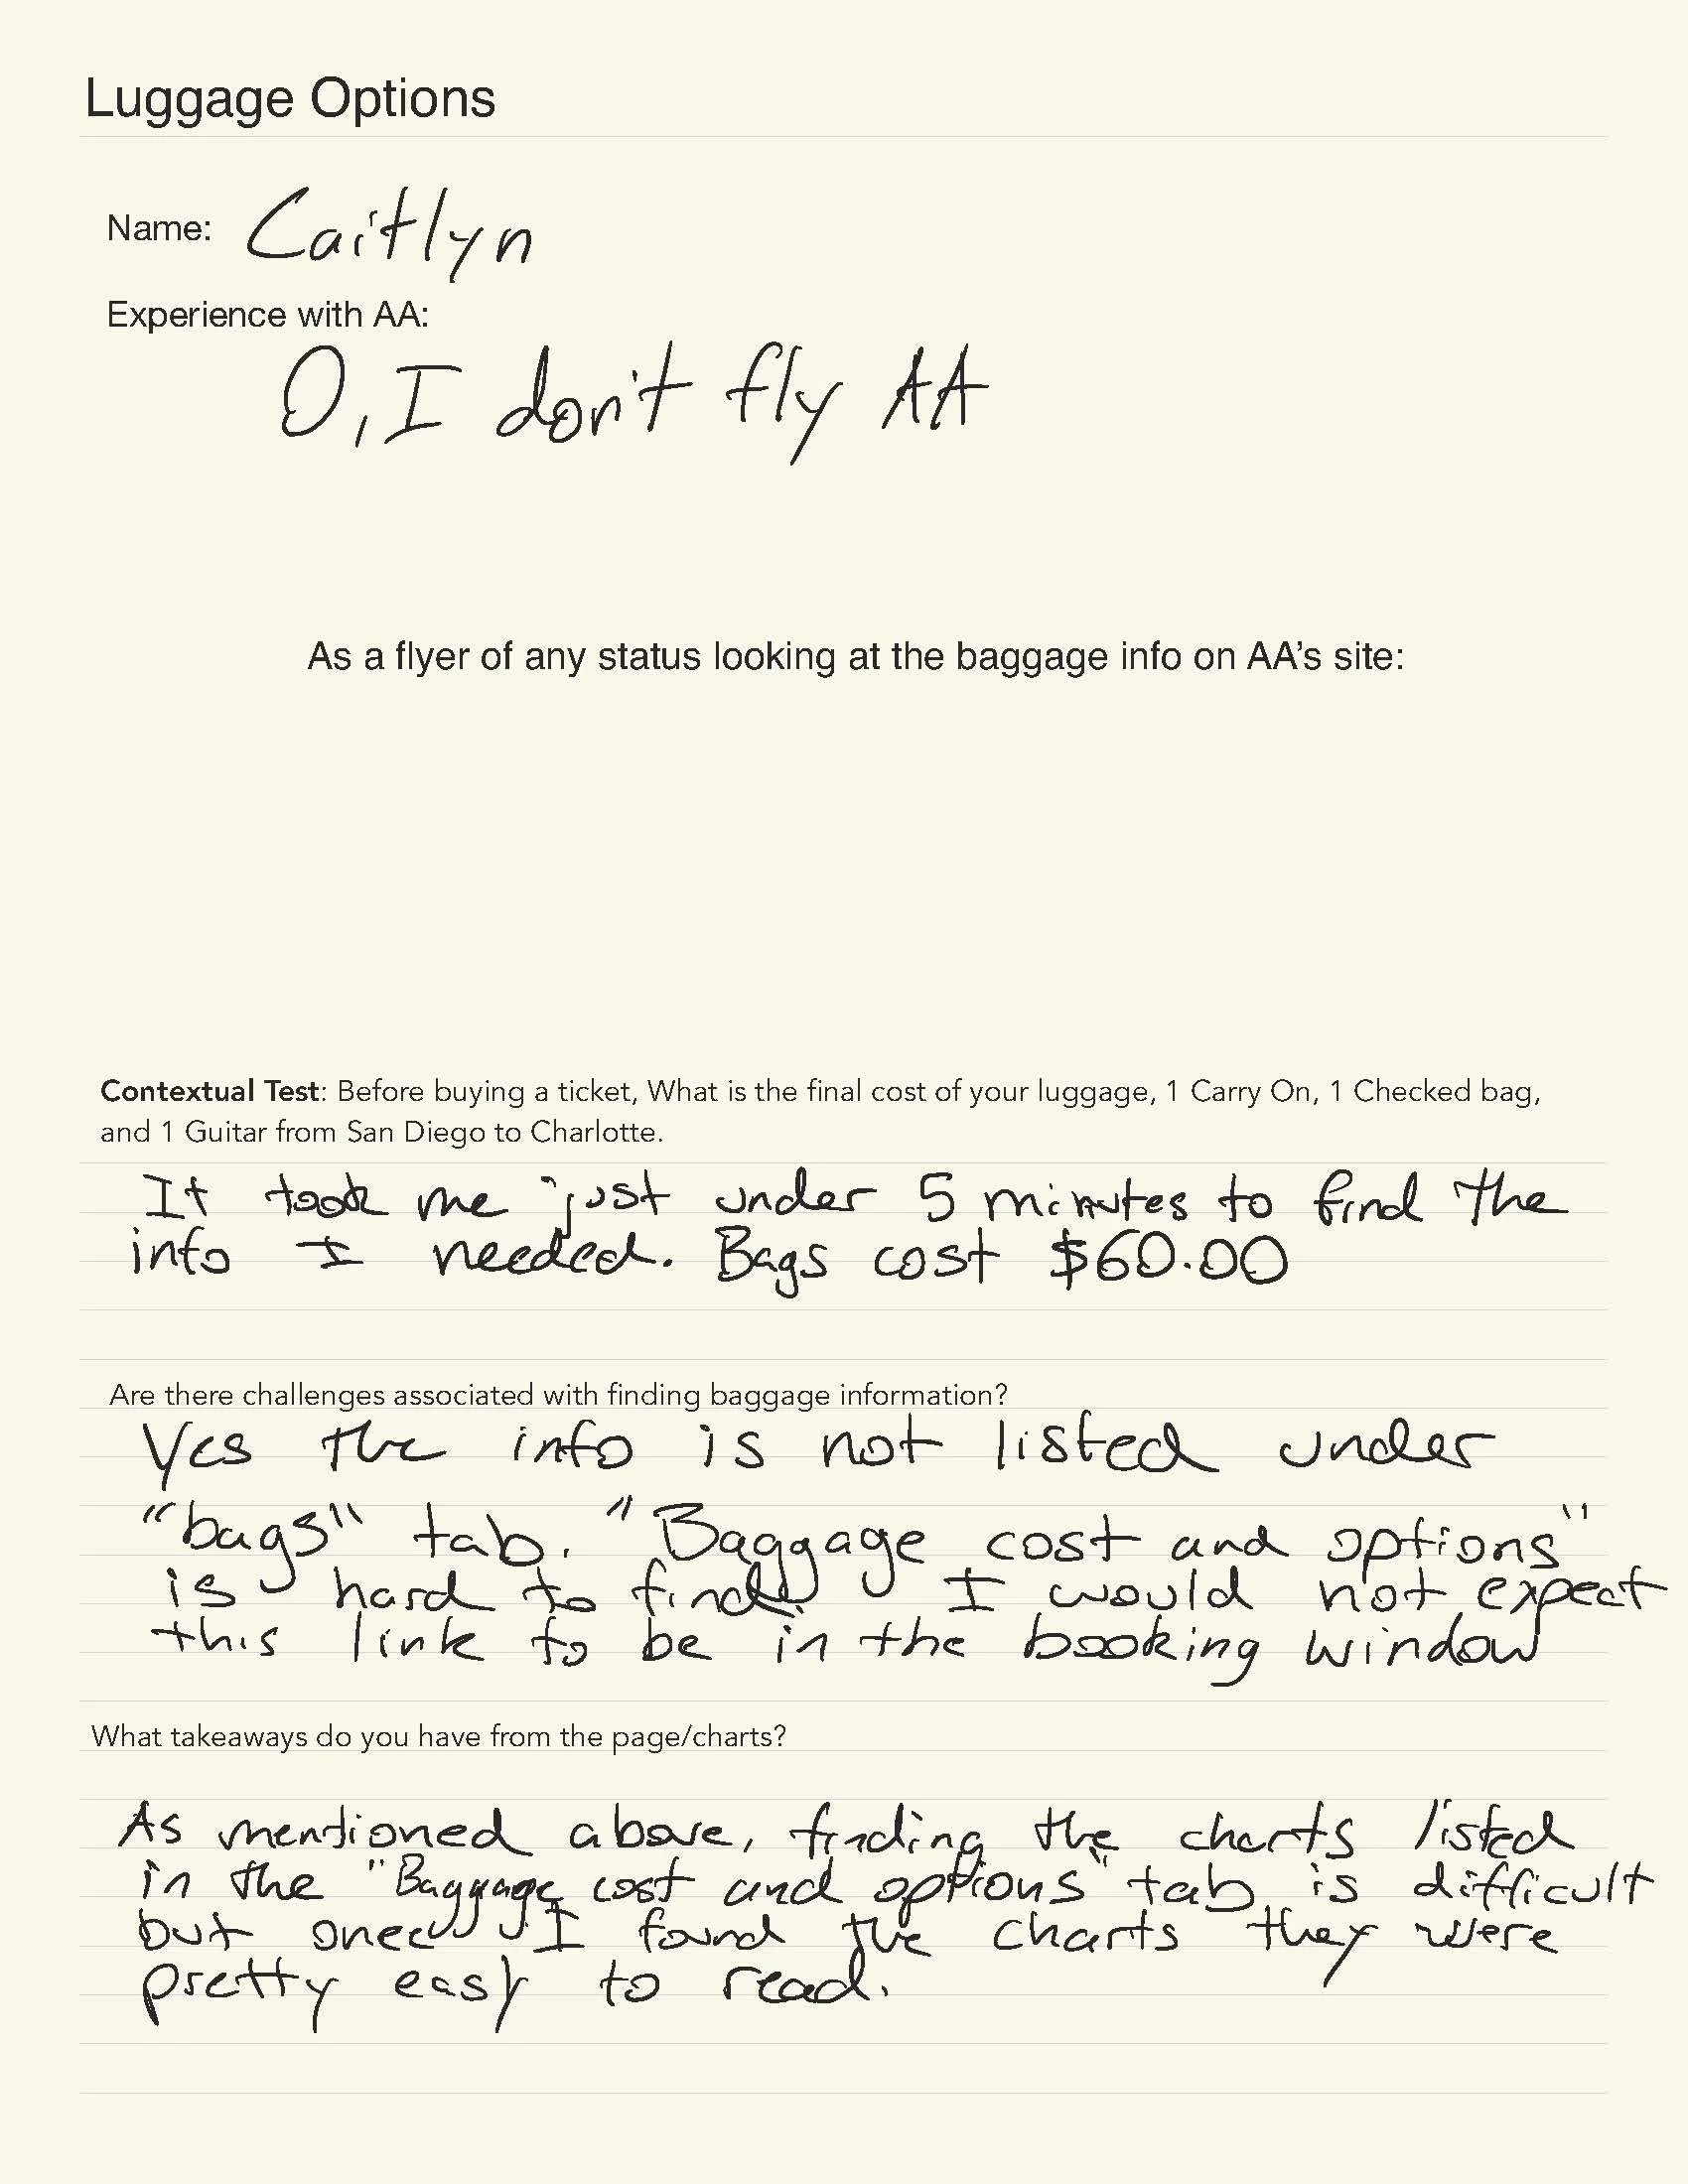 Luggage Options
Name: Caitlyn
Experience with AA:
0, I don't fly AA
As a flyer of any status looking at the baggage info on AA's site:
Contextual Test: Before buying a ticket, What is the final cost of your luggage, 1 Carry On, 1 Checked bag,
and 1 Guitar from San Diego to Charlotte.
It took me just under 5 minutes to find the
info I needed. Bags cost $60.00
Are there challenges associated with finding baggage information?
Yes the info is not listed under
"bags" tab. "Baggage cost and options"
is hard to find. I would not expect
this link to be in the booking window
What takeaways do you have from the page/charts?
As mentioned above, finding the charts listed
in the "Baggage cost and options" tab is difficult
but once I found the charts they were
pretty easy to read.